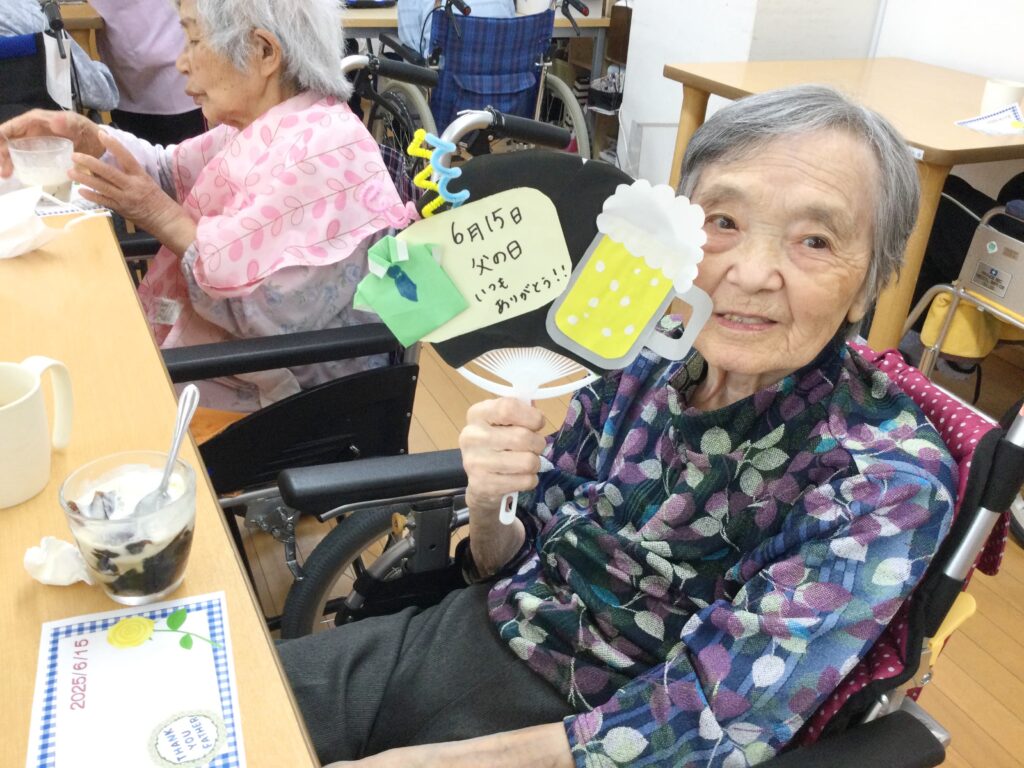 6月15日
父の日
いつも
ありがとう!!
2025/6/15
THANK
YOU
FATHER